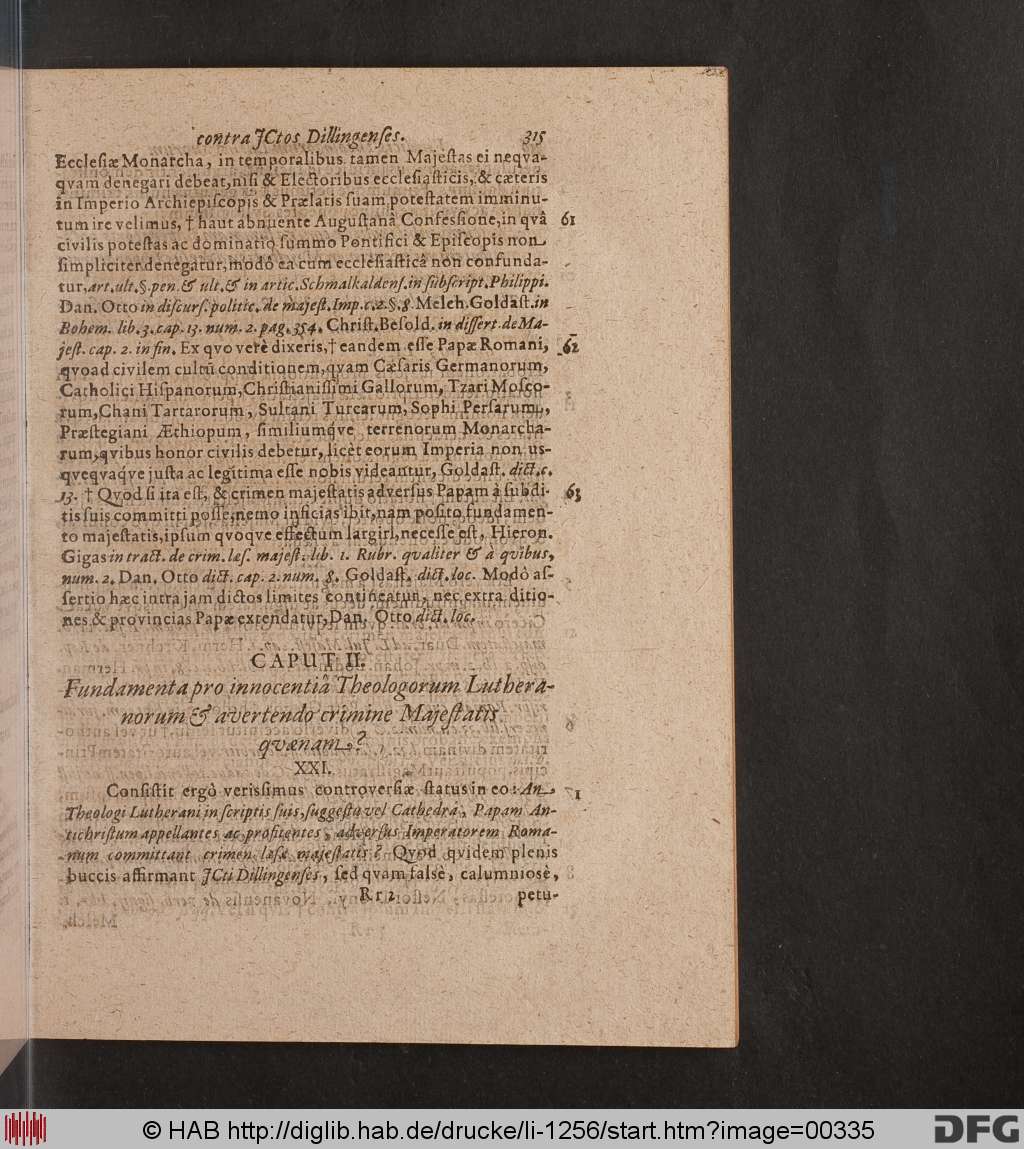 contra JCtos Dillingenses. 315
Ecclesiæ Monarcha, in temporalibus tamen Majestas ei neqva-
qvam denegari debeat, nisi & Electoribus ecclesiasticis, & cæteris
in Imperio Archiepiscopis & Prælatis suam potestatem imminu-
tum ire velimus, † haut abnuente Augustanâ Confessione, in qvâ 61
civilis potestas ac dominatio summo Pontifici & Episcopis non
simpliciter denegatur, modô ea cum ecclesiasticâ non confunda-
tur, art. ult. §. pen. & ult. & in artic. Schmalkaldens. in subscript. Philippi.
Dan. Otto in discurs. politic. de majest. Imp. c. 2. §. 8. Melch. Goldast. in
Bohem. lib. 3. cap. 13. num. 2. pag. 354. Christ. Besold. in dissert. de Ma-
jest. cap. 2. in fin. Ex qvo verè dixeris, † eandem esse Papæ Romani, 62
qvoad civilem cultũ conditionem, qvam Cæsaris Germanorum,
Catholici Hispanorum, Christianissimi Gallorum, Tzari Mosco-
rum, Chani Tartarorum, Sultani Turcarum, Sophi Persarum,
Præstegiani Æthiopum, similiumq́ve terrenorum Monarcha-
rum, qvibus honor civilis debetur, licèt eorum Imperia non us-
qveqvaq́ve justa ac legitima esse nobis videantur, Goldast. dict. c.
13. † Qvod si ita est, & crimen majestatis adversus Papam à subdi- 63
tis suis committi posse, nemo inficias ibit, nam posito fundamen-
to majestatis, ipsum qvoqve effectum largiri, necesse est, Hieron.
Gigas in tract. de crim. læs. majest. lib. 1. Rubr. qvaliter & à qvibus,
num. 2. Dan. Otto dict. cap. 2. num. 8. Goldast. dict. loc. Modô as-
sertio hæc intra jam dictos limites contineatur, nec extra ditio-
nes & provincias Papæ extendatur, Dan. Otto dict. loc.
CAPUT II.
Fundamenta pro innocentiâ Theologorum Luthera-
norum & avertendo crimine Majestatis
qvænam?
XXI.
Consistit ergô verissimus controversiæ status in eo: An 1
Theologi Lutherani in scriptis suis, suggestu vel Cathedrâ, Papam An-
tichristum appellantes ac profitentes, adversus Imperatorem Roma-
num committant crimen læsæ majestatis? Qvod qvidem plenis
buccis affirmant JCti Dillingenses, sed qvam falsè, calumniosè,
Rr 2 petu-
© HAB http://diglib.hab.de/drucke/li-1256/start.htm?image=00335
DFG